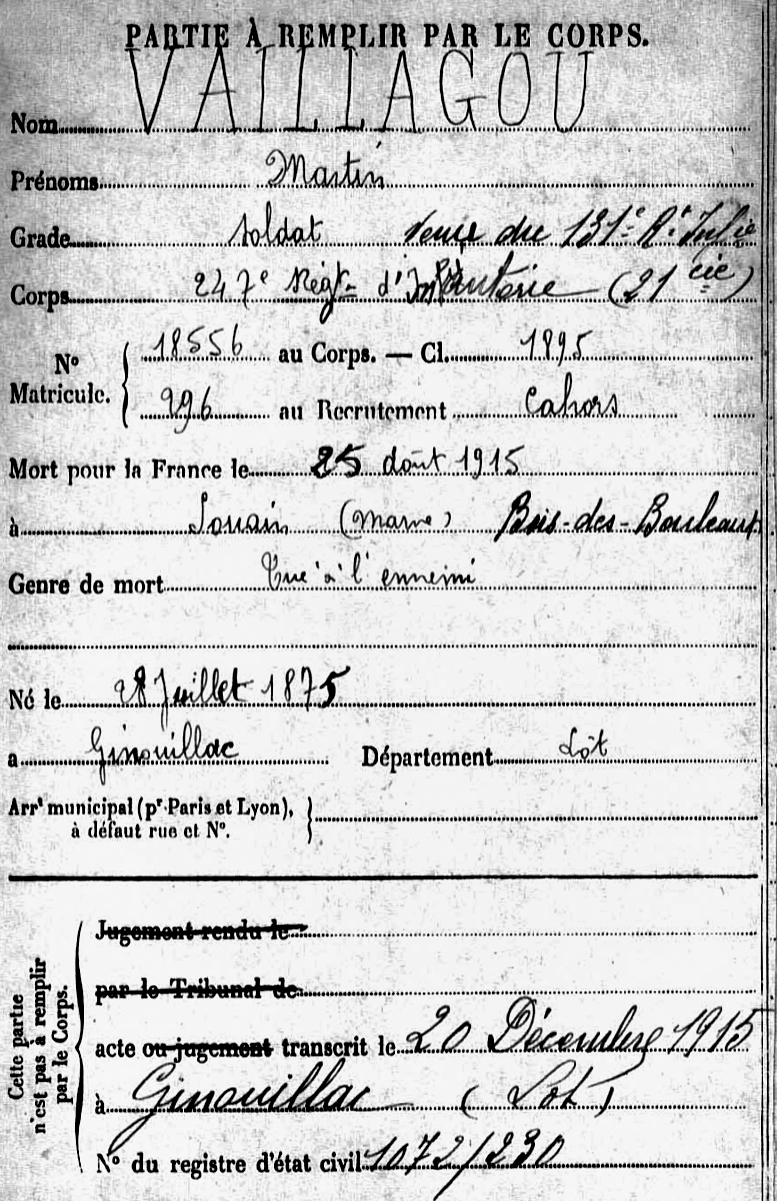 PARTIE À REMPLIR PAR LE CORPS.
Nom VAILLAGOU
Prénoms Martin
Grade soldat venu du 131e Rt Inf
Corps 247e Régt d'Infanterie (21 cie)
No Matricule. 18556 au Corps. — Cl. 1895
996 au Recrutement Cahors
Mort pour la France le 25 août 1915
à Souain (Marne) Bois-des-Bouleaux
Genre de mort Tué à l'ennemi
Né le 28 Juillet 1875
a Ginouillac Département Lot
Arrt municipal (pr Paris et Lyon),
à défaut rue et No.
Cette partie n'est pas à remplir par le Corps.
Jugement rendu le
par le Tribunal de
acte ou jugement transcrit le 20 Décembre 1915
à Ginouillac (Lot)
No du registre d'état civil 1072/230